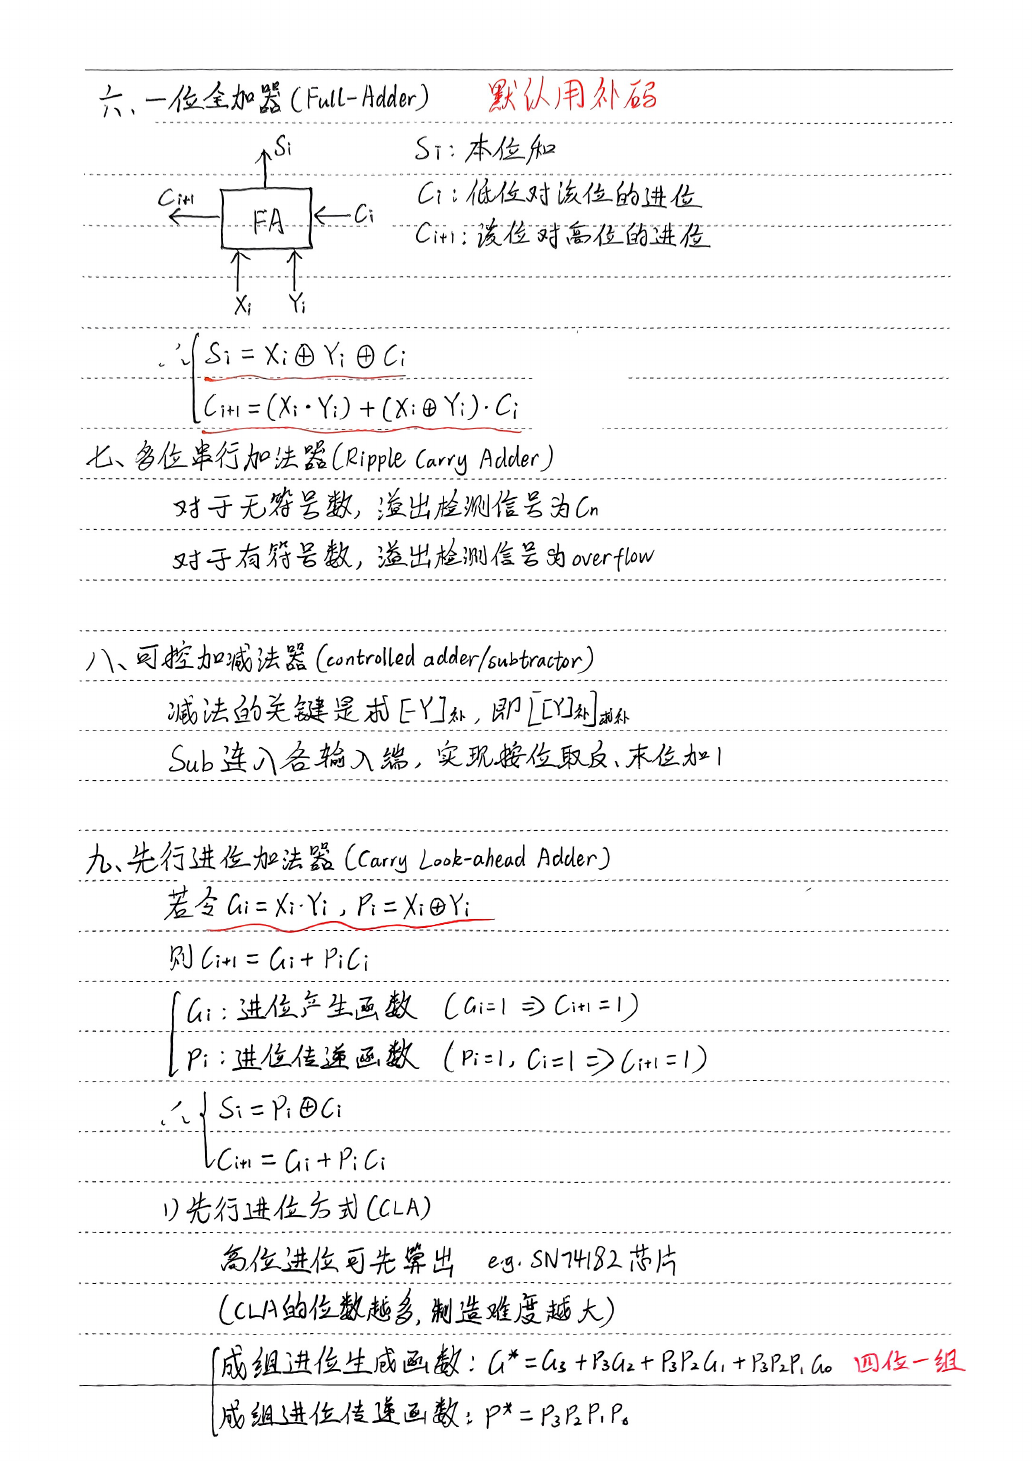 六、一位全加器(Full-Adder) 默认用补码
Si
Si: 本位和
Ci+1
FA
Ci
Ci: 低位对该位的进位
Ci+1: 该位对高位的进位
Xi Yi
∴ { Si = Xi ⊕ Yi ⊕ Ci
Ci+1 = (Xi·Yi) + (Xi ⊕ Yi)·Ci
七、多位串行加法器(Ripple Carry Adder)
对于无符号数, 溢出检测信号为Cn
对于有符号数, 溢出检测信号为overflow
八、可控加减法器(controlled adder/subtractor)
减法的关键是求[-Y]补, 即[[Y]补]求补
Sub连入各输入端, 实现按位取反、末位加1
九、先行进位加法器(Carry Look-ahead Adder)
若令Gi = Xi·Yi, Pi = Xi⊕Yi
则Ci+1 = Gi + PiCi
{ Gi: 进位产生函数 (Gi=1 ⇒ Ci+1=1)
Pi: 进位传递函数 (Pi=1, Ci=1 ⇒ Ci+1=1)
∴ { Si = Pi⊕Ci
Ci+1 = Gi + PiCi
1) 先行进位方式(CLA)
高位进位可先算出 e.g. SN74182芯片
(CLA的位数越多, 制造难度越大)
{ 成组进位生成函数: G* = G3 + P3G2 + P3P2G1 + P3P2P1G0 四位一组
成组进位传递函数: P* = P3P2P1P0